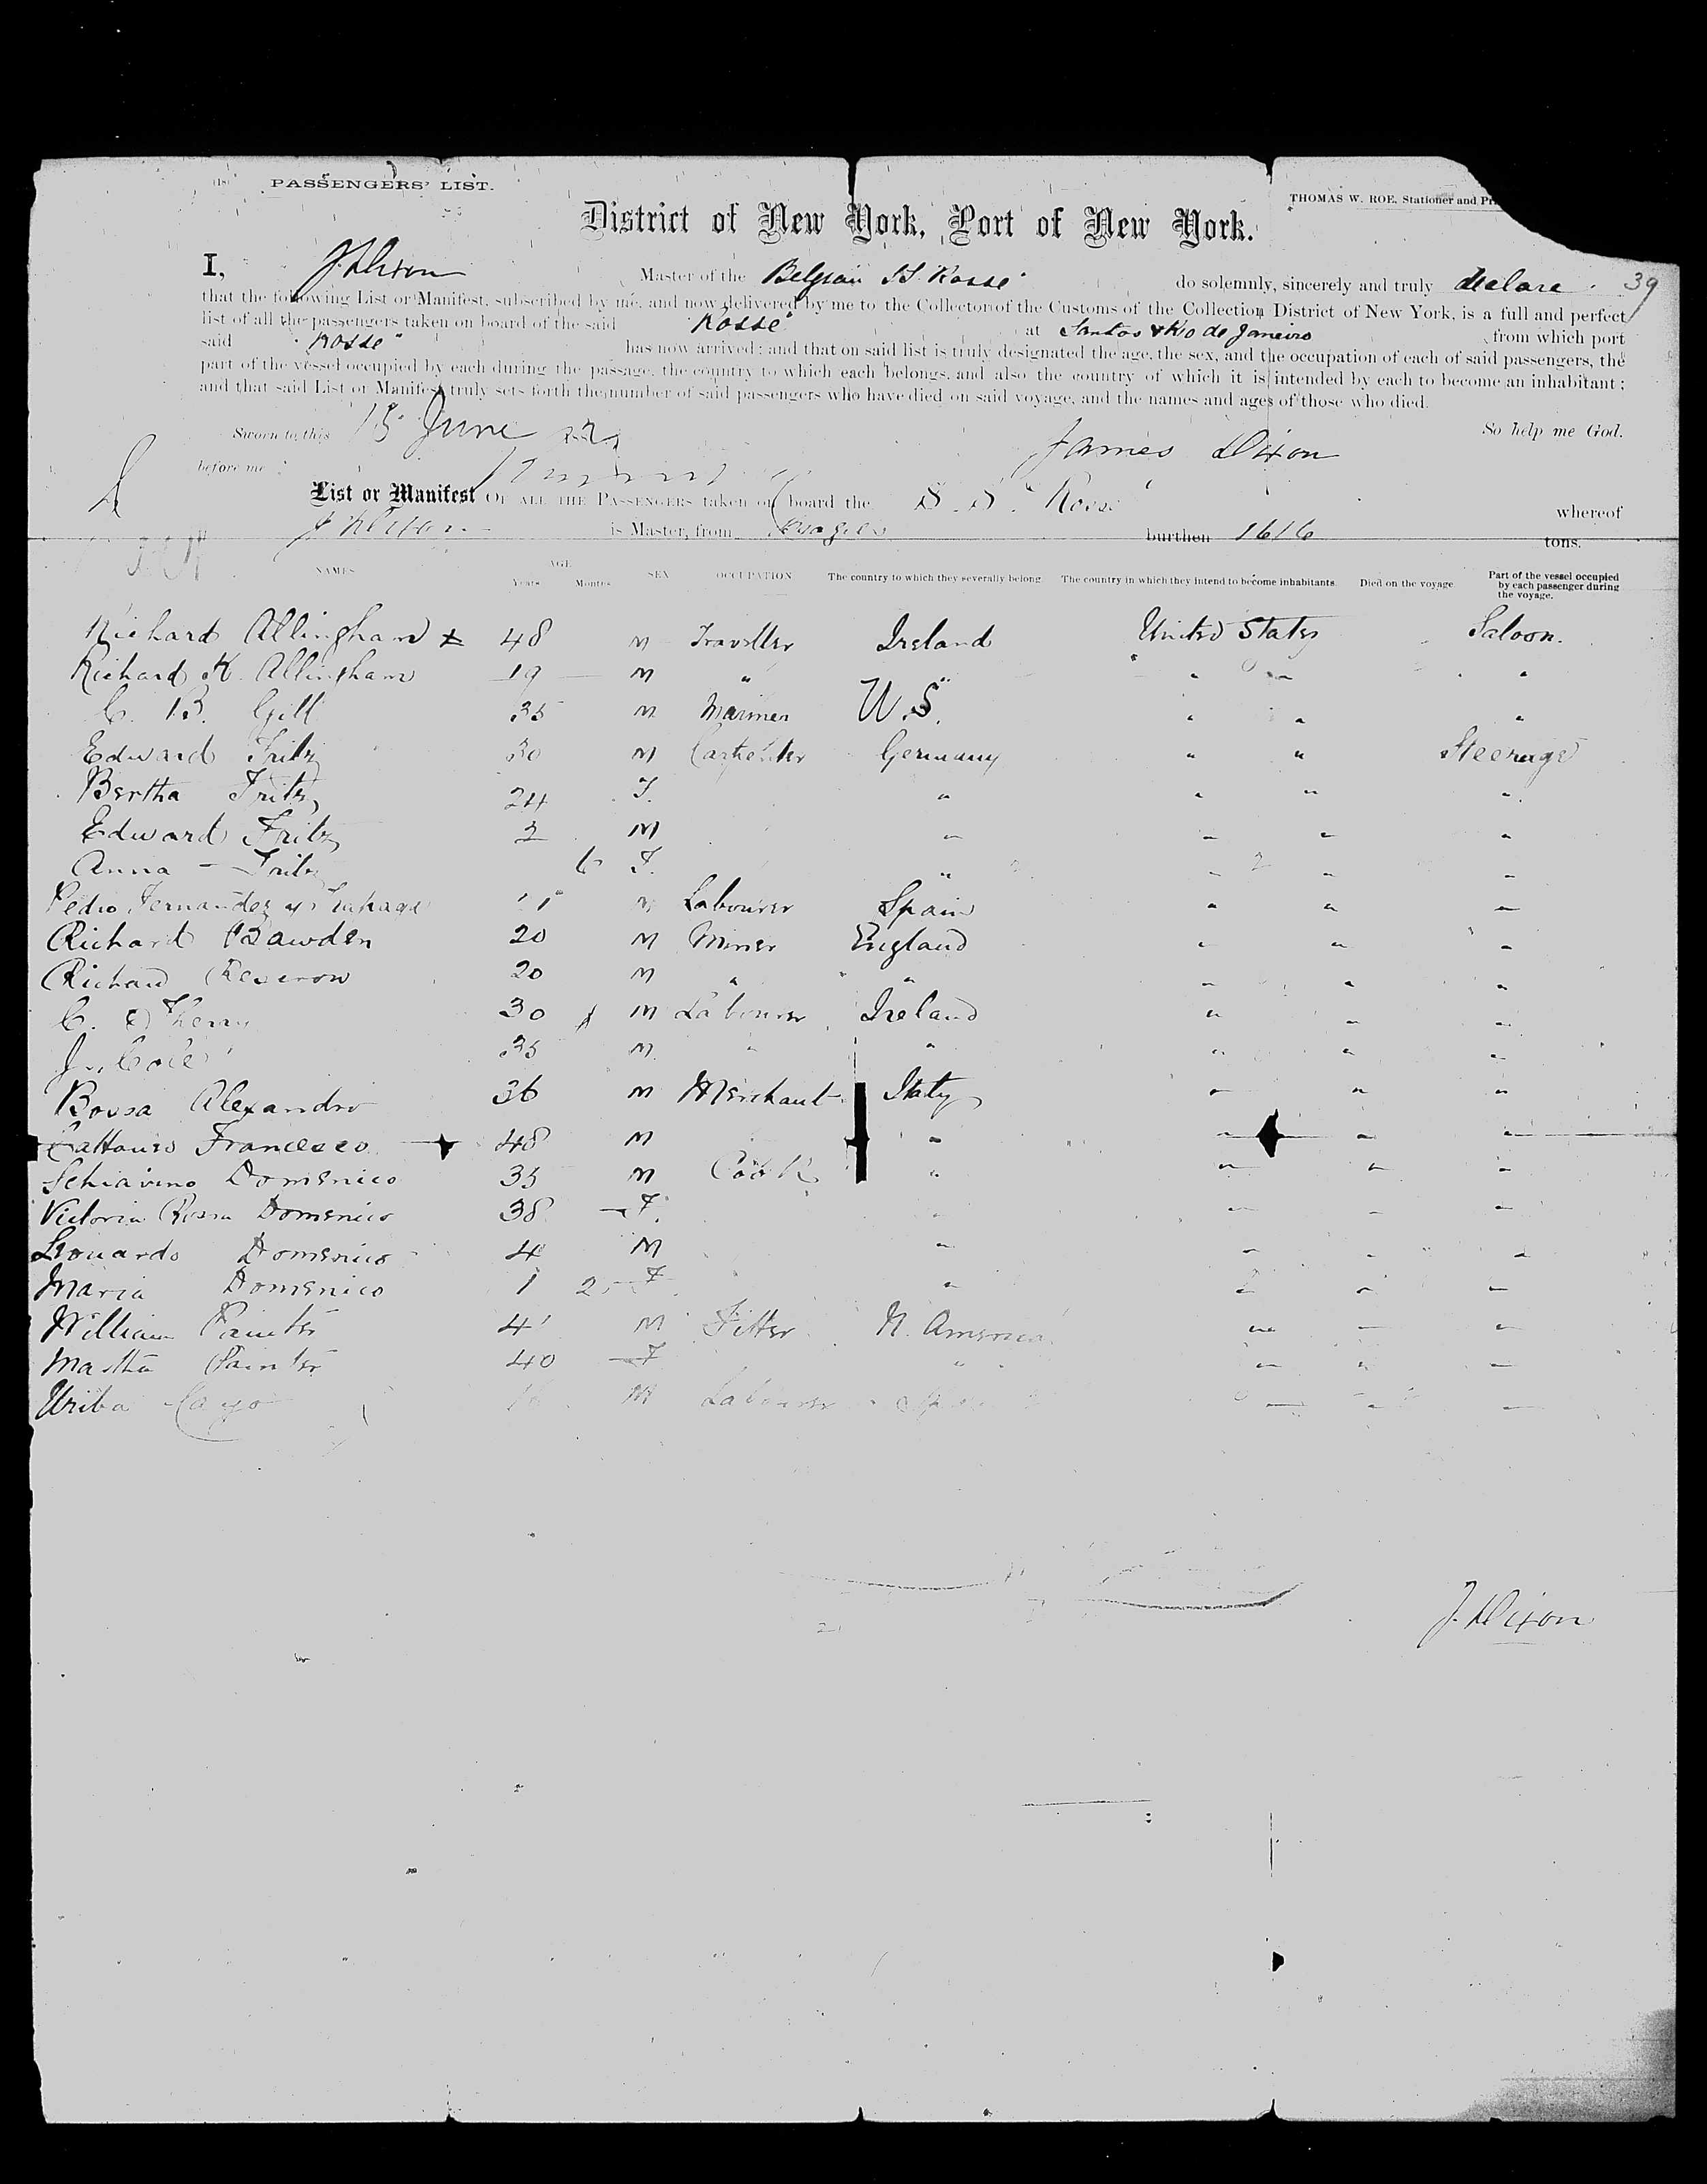 PASSENGERS' LIST.
THOMAS W. ROE, Stationer and
District of New York, Port of New York.
39
I, J. Dixon Master of the Belgian SS. Kosse do solemnly, sincerely and truly declare
that the following List or Manifest, subscribed by me, and now delivered by me to the Collector of the Customs of the Collection District of New York, is a full and perfect
list of all the passengers taken on board of the said Kosse at Santos & Rio de Janeiro from which port
said Kosse has now arrived; and that on said list is truly designated the age, the sex, and the occupation of each of said passengers, the
part of the vessel occupied by each during the passage, the country to which each belongs, and also the country of which it is intended by each to become an inhabitant;
and that said List or Manifest truly sets forth the number of said passengers who have died on said voyage, and the names and ages of those who died.
So help me God.
Sworn to this 15 June
James Dixon
before me
List or Manifest OF ALL THE PASSENGERS taken on board the S.S. Kosse whereof
J Dixon is Master, from burthen 1616 tons.
NAMES AGE Years Months SEX OCCUPATION The country to which they severally belong. The country in which they intend to become inhabitants. Died on the voyage. Part of the vessel occupied by each passenger during the voyage.
Richard Allingham 48 M Traveller Ireland United States Saloon.
Richard K. Allingham 19 M " " " " "
C. B. Gill 35 M Mariner U.S. " " "
Edward Fritz 30 M Carpenter Germany " " Steerage
Bertha Fritz 24 F. " " " "
Edward Fritz 2 M " " " "
Anna Fritz 6 F. " " " "
Pedro Fernandez y M Labourer Spain " " "
Richard Bawden 20 M Miner England " " "
Richard 20 M " " " " "
C. 30 M Labourer Ireland " " "
Cole 35 M " " " " "
Bossa Alexandro 36 M Merchant Italy " " "
Cattaneo Francesco 48 M " " " "
Schiavino Domenico 35 M Cook " " " "
Victoria Rosa Domenico 38 F. " " " "
Leonardo Domenico 4 M " " " "
Maria Domenico 1 2 F " " " "
William Painter 41 M Fitter N. America " " "
Martha Painter 40 F " " " "
Uriba Cayo M Labourer " " "
J. Dixon